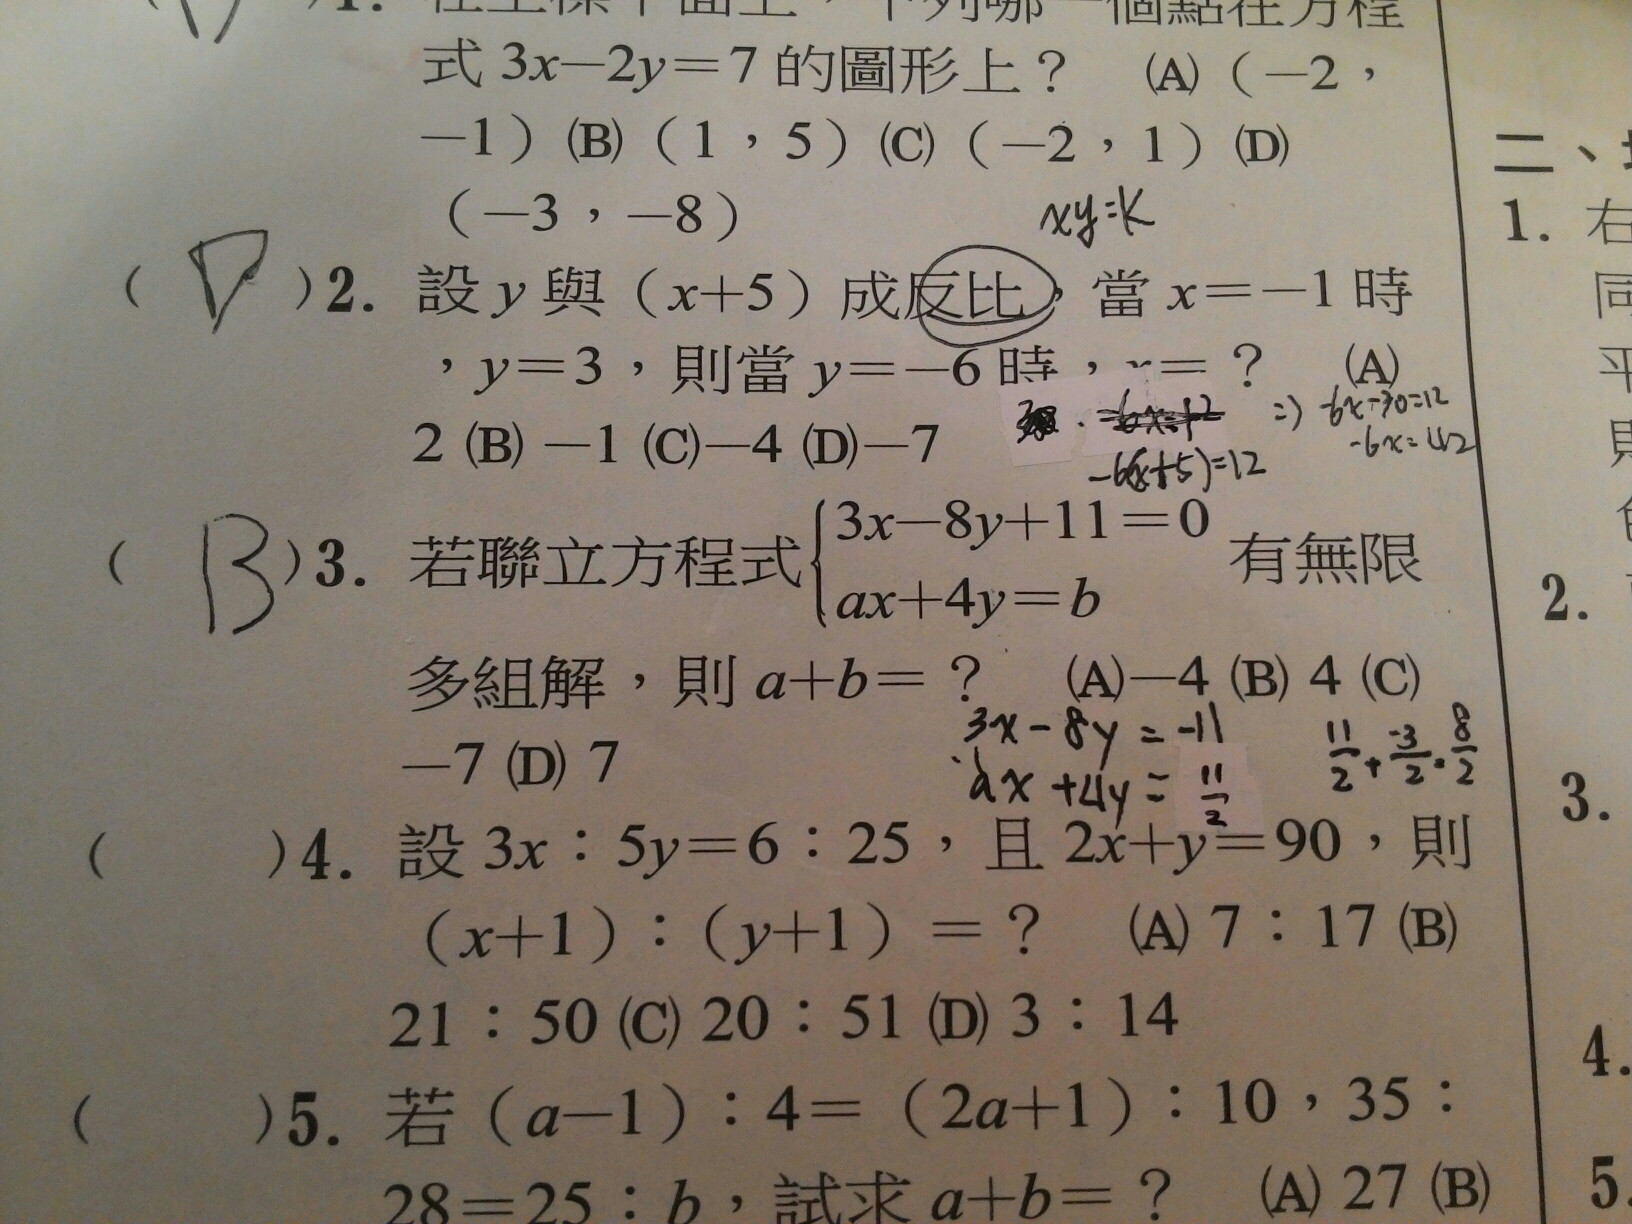 )1. 在坐標平面上，下列哪一個點在方程
式 3x－2y＝7 的圖形上？ (A)（－2，
－1）(B)（1，5）(C)（－2，1）(D)
（－3，－8）
xy=k
( D )2. 設 y 與（x+5）成反比，當 x＝－1 時
，y＝3，則當 y＝－6 時，x＝？ (A)
-6x=12 => -6x-30=12
2 (B) －1 (C)－4 (D)－7
-6x=42
-6(x+5)=12
( B )3. 若聯立方程式 3x－8y＋11＝0 有無限
ax＋4y＝b
多組解，則 a＋b＝？ (A)－4 (B) 4 (C)
3x-8y=-11 11/2+-3/2=8/2
－7 (D) 7
ax+4y=11/2
( )4. 設 3x：5y＝6：25，且 2x＋y＝90，則
（x＋1）：（y＋1）＝？ (A) 7：17 (B)
21：50 (C) 20：51 (D) 3：14
( )5. 若（a－1）：4＝（2a＋1）：10，35：
28＝25：b，試求 a＋b＝？ (A) 27 (B)
二、
1. 右
同
平
2.
3.
4.
5.